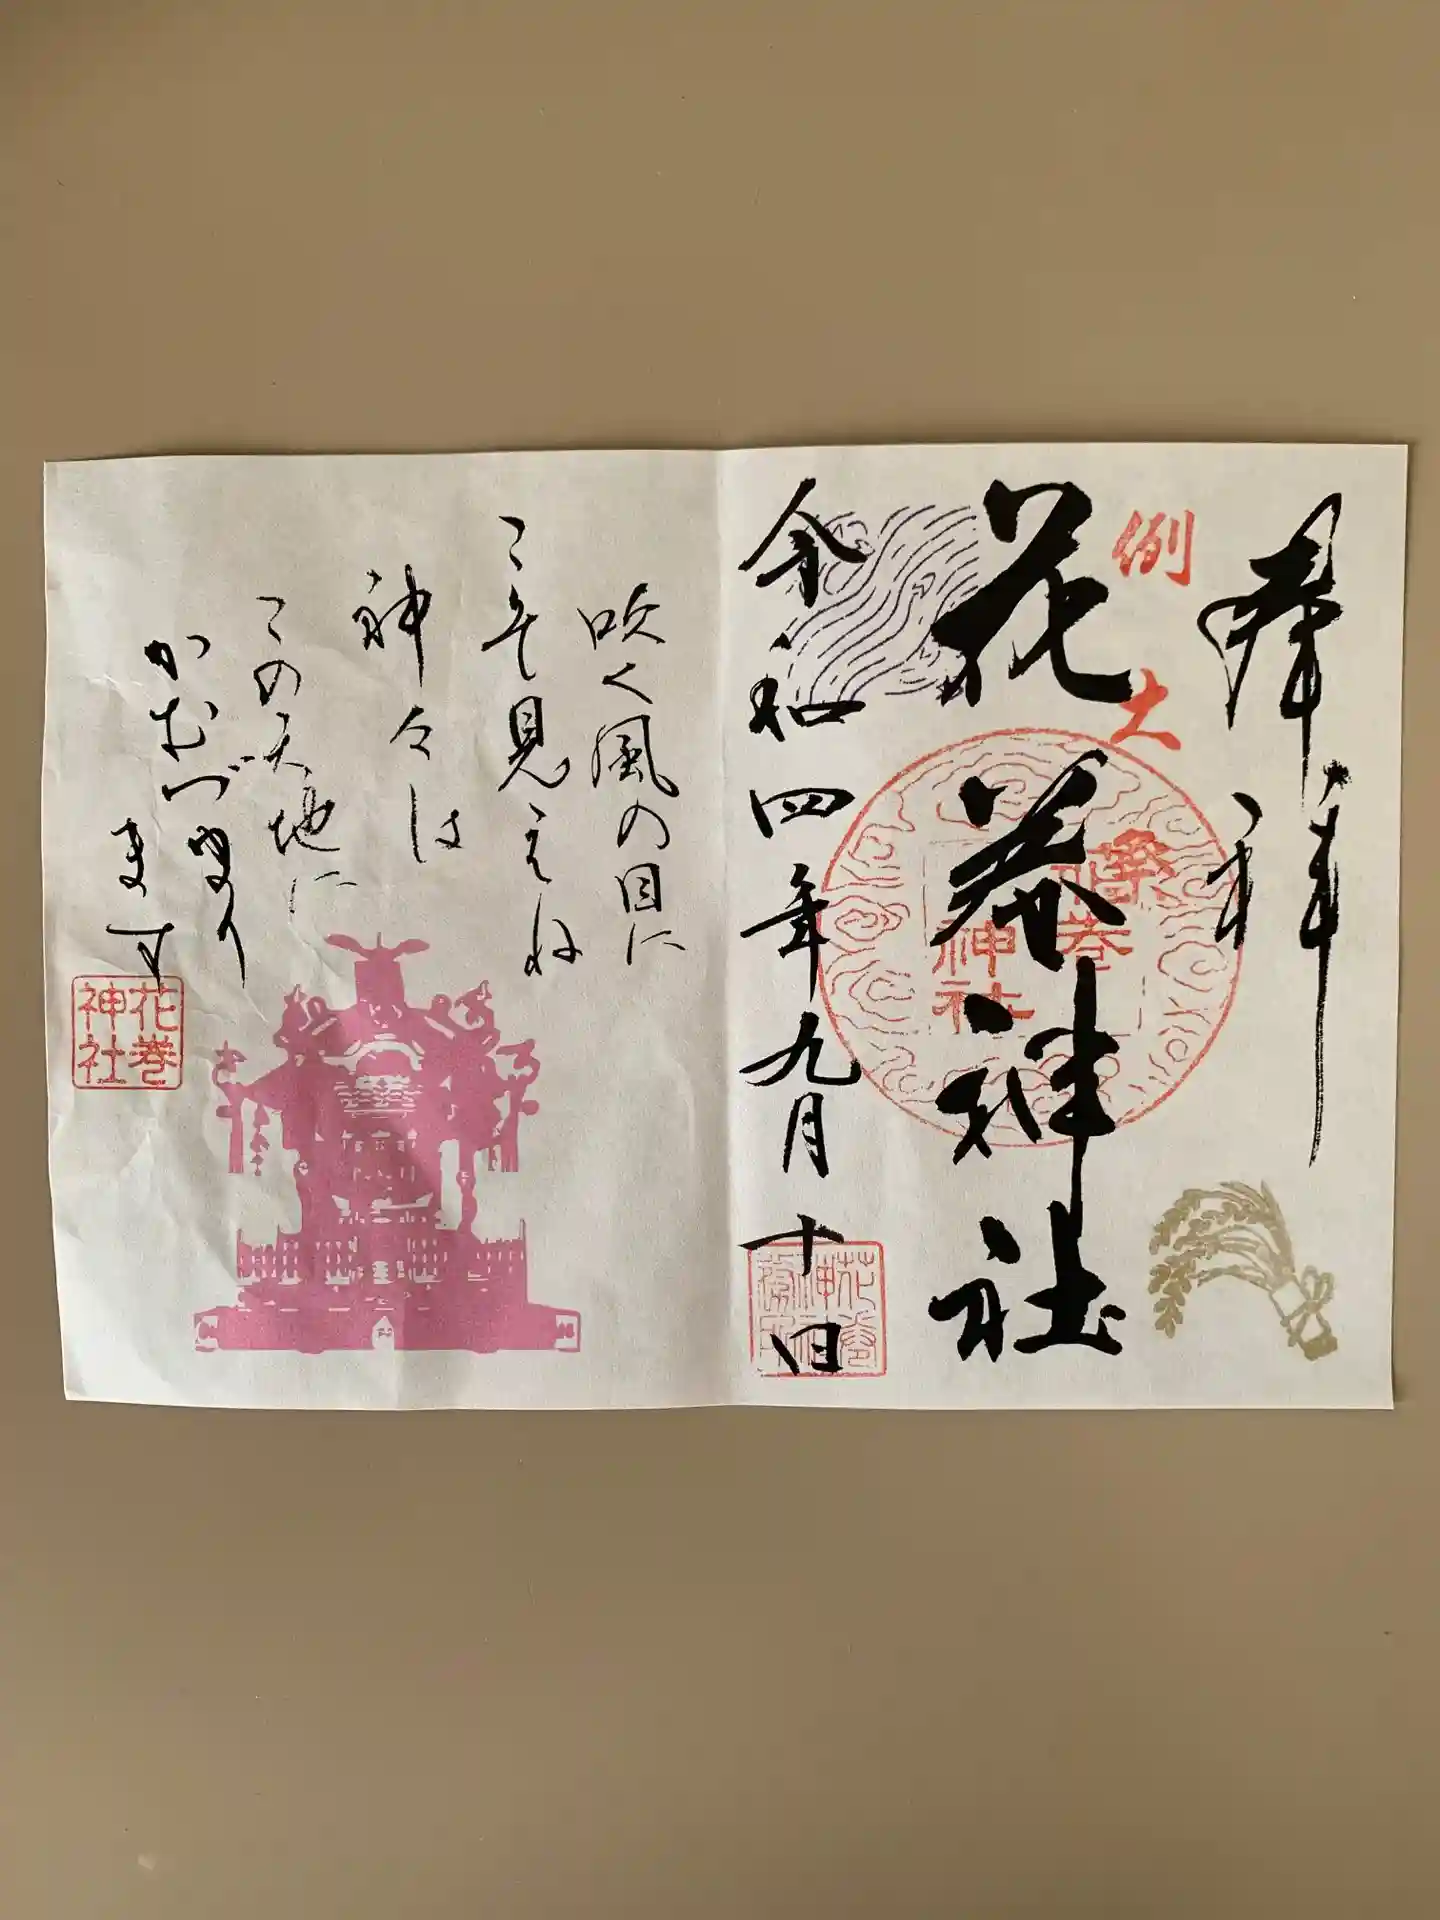 奉拝
例
花巻神社
巻
神社
令和四年九月十日
花巻
神社
吹く風の目に
こそ見えね
神々は
この天地に
かむづまり
ます
花巻
神社